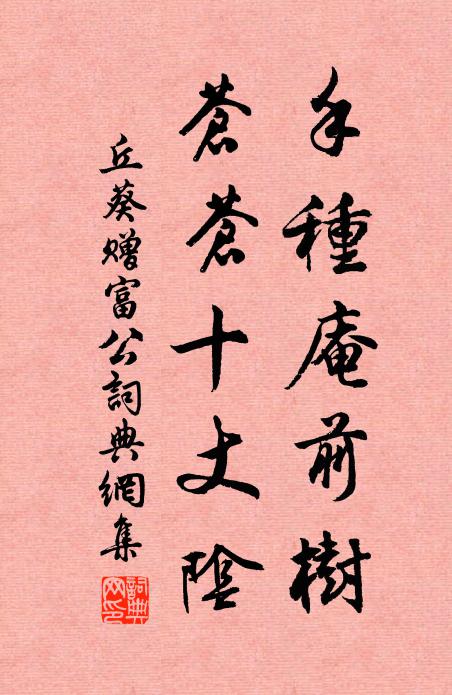 手種庵前樹
蒼蒼十丈陰
丘葵贈富公詞典網集
詞典網印